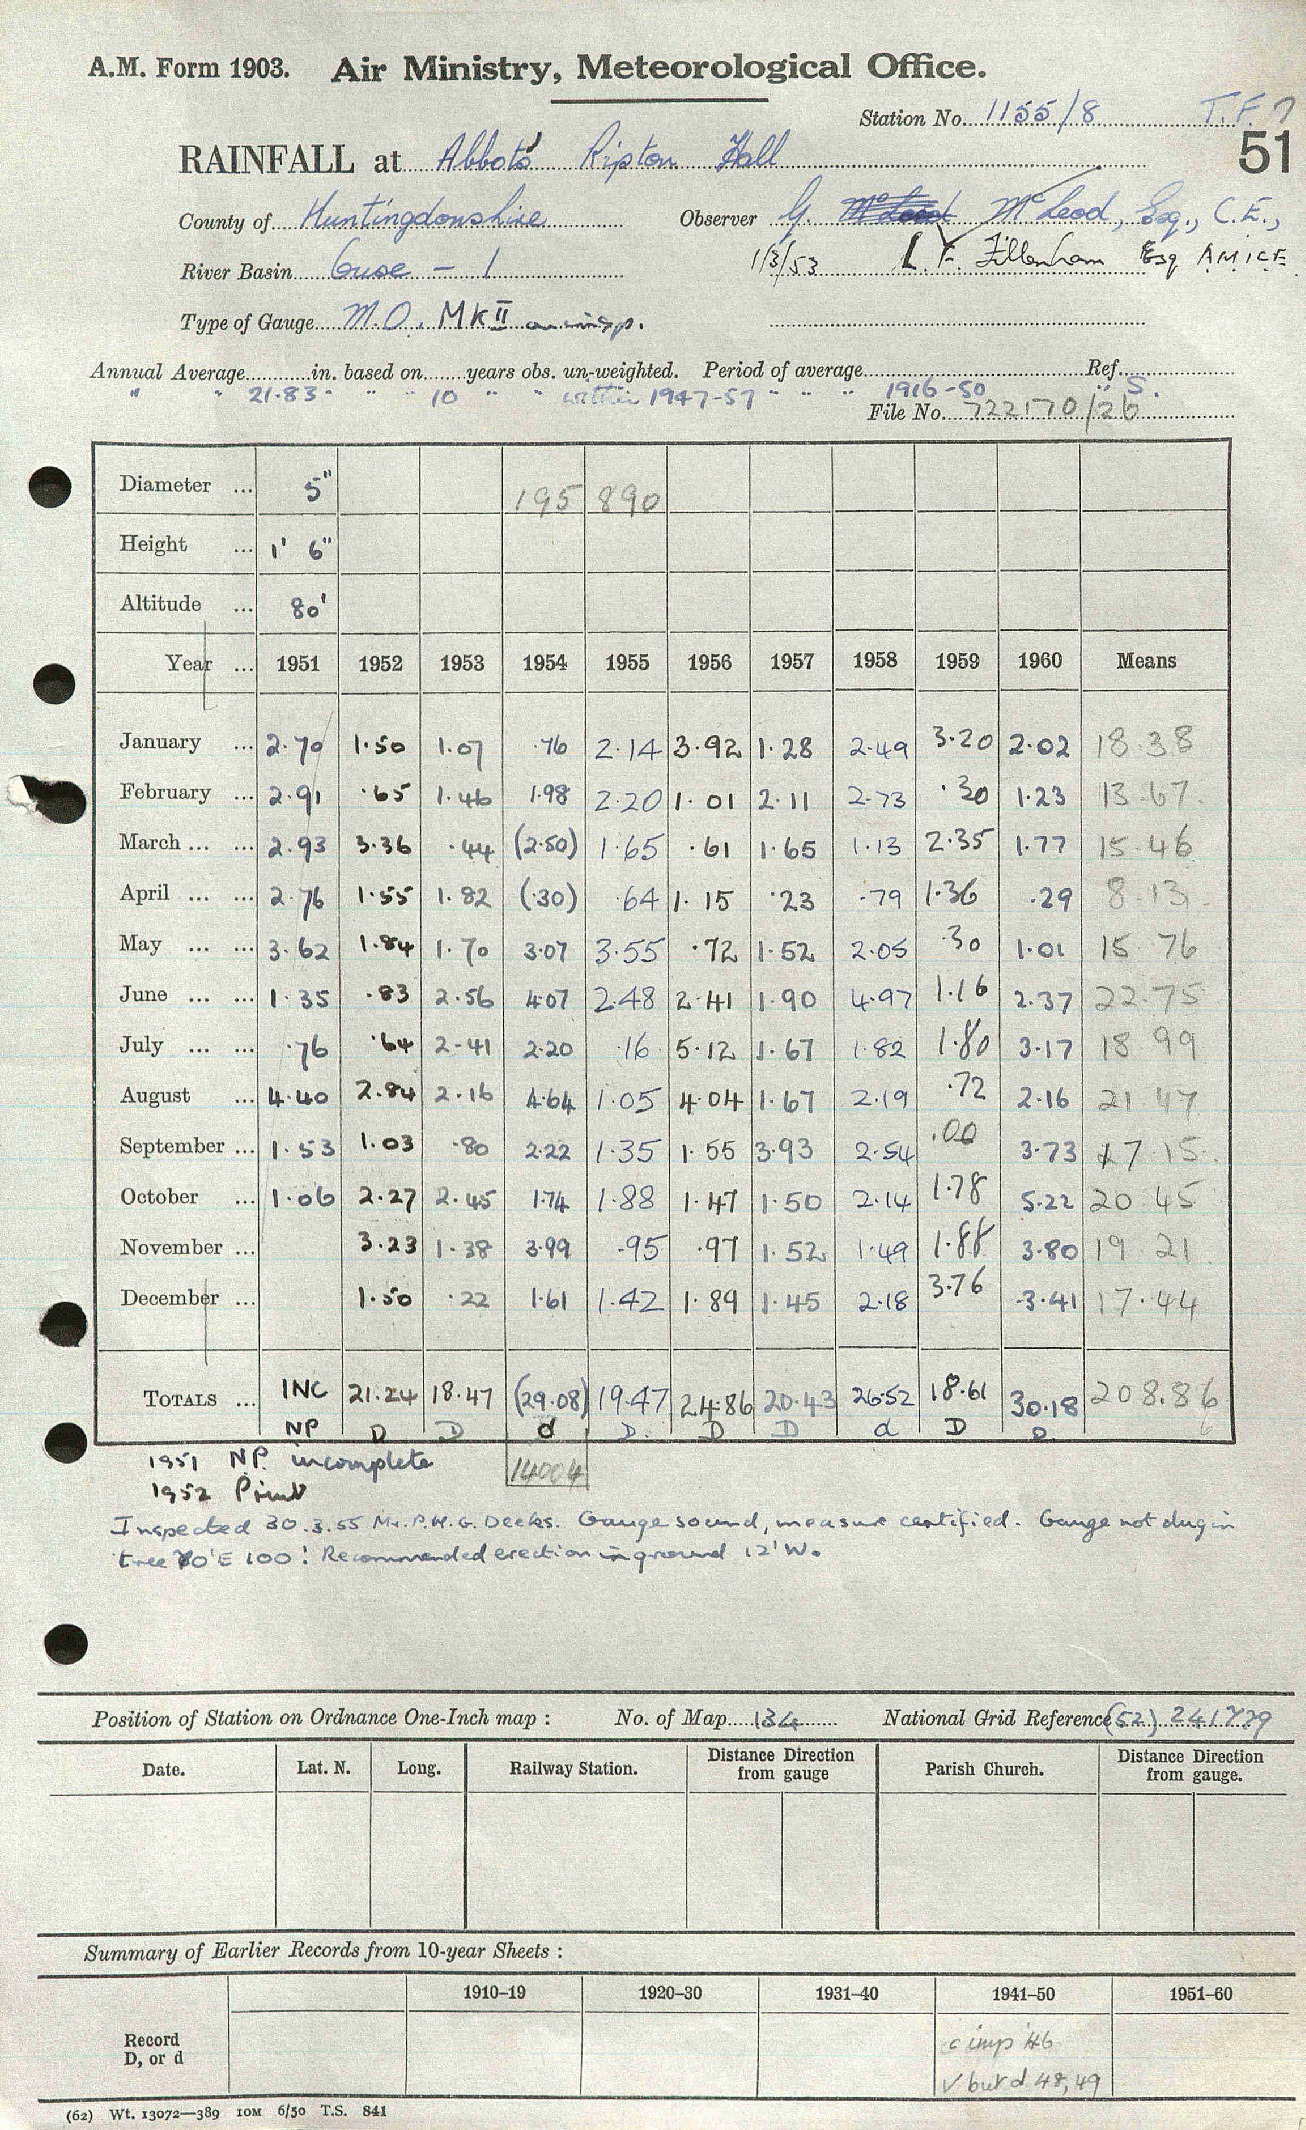 A.M. Form 1903. Air Ministry, Meteorological Office.
Station No. 1155/8 T.F.
51
RAINFALL at Abbots Ripton Hall
County of Huntingdonshire Observer G. McLeod, Esq., C.E.,
River Basin Ouse - 1 1/3/53 L. F. Fillenham Esq A.M.I.C.E.
Type of Gauge M.O. Mk II on insp.
Annual Average in. based on years obs. un-weighted. Period of average Ref.
" " 21.83 " " " 10 " " within 1947-57 " " " 1916-50 " S.
File No. 722170/26
Diameter ... 5" 195 890
Height ... 1' 6"
Altitude ... 80'
Year ... 1951 1952 1953 1954 1955 1956 1957 1958 1959 1960 Means
January ... 2.70 1.50 1.07 .76 2.14 3.92 1.28 2.49 3.20 2.02 18.38
February ... 2.91 .65 1.46 1.98 2.20 1.01 2.11 2.73 .30 1.23 13.67
March ... ... 2.93 3.36 .44 (2.50) 1.65 .61 1.65 1.13 2.35 1.77 15.46
April ... ... 2.76 1.55 1.82 (.30) .64 1.15 .23 .79 1.36 .29 8.13
May ... ... 3.62 1.84 1.70 3.07 3.55 .72 1.52 2.05 .30 1.01 15 76
June ... ... 1.35 .83 2.56 4.07 2.48 2.41 1.90 4.97 1.16 2.37 22.75
July ... ... .76 .64 2.41 2.20 .16 5.12 1.67 1.82 1.80 3.17 18 99
August ... 4.40 2.84 2.16 4.64 1.05 4.04 1.67 2.19 .72 2.16 21 47
September ... 1.53 1.03 .80 2.22 1.35 1.55 3.93 2.54 .00 3.73 17.15
October ... 1.06 2.27 2.45 1.74 1.88 1.47 1.50 2.14 1.78 5.22 20 45
November ... 3.23 1.38 3.99 .95 .97 1.52 1.49 1.88 3.80 19 21
December ... 1.50 .22 1.61 1.42 1.89 1.45 2.18 3.76 3.41 17.44
TOTALS ... INC 21.24 18.47 (29.08) 19.47 24.86 20.43 26.52 18.61 30.18 208.86
NP D D d D. D D d D D 6
1951 NP. incomplete 14004
1952 Print
Inspected 30.3.55 Mr. P.W.G. Deeks. Gauge sound, measure certified. Gauge not dug in
tree 70'E 100'. Recommended erection in ground 12'W.
Position of Station on Ordnance One-Inch map : No. of Map 134 National Grid Reference (52) 241779
Date. Lat. N. Long. Railway Station. Distance Direction from gauge Parish Church. Distance Direction from gauge.
Summary of Earlier Records from 10-year Sheets :
1910–19 1920–30 1931–40 1941–50 1951–60
Record c imp '46
D, or d √ but d 48, 49
(62) Wt. 13072—389 10M 6/50 T.S. 841